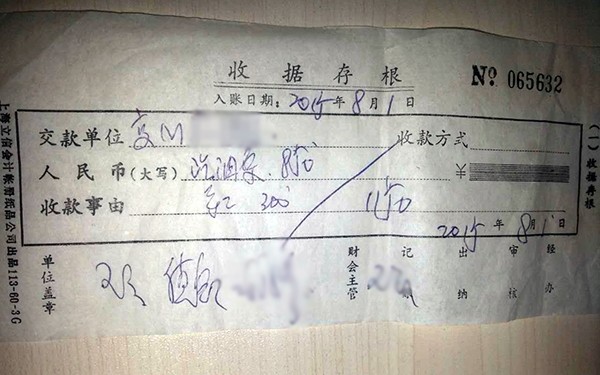 收据存根
№ 065632
入账日期：2015年8月1日
交款单位 收款方式
人民币(大写) 汽油票 850 ¥
收款事由 300 1150
2015年8月1日
单位盖章 财会主管 记账 出纳 审核 经办
上海立信会计帐册纸品公司出品113-60-3G
(一)收据存根